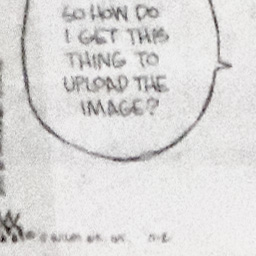 SO HOW DO
I GET THIS
THING TO
UPLOAD THE
IMAGE?